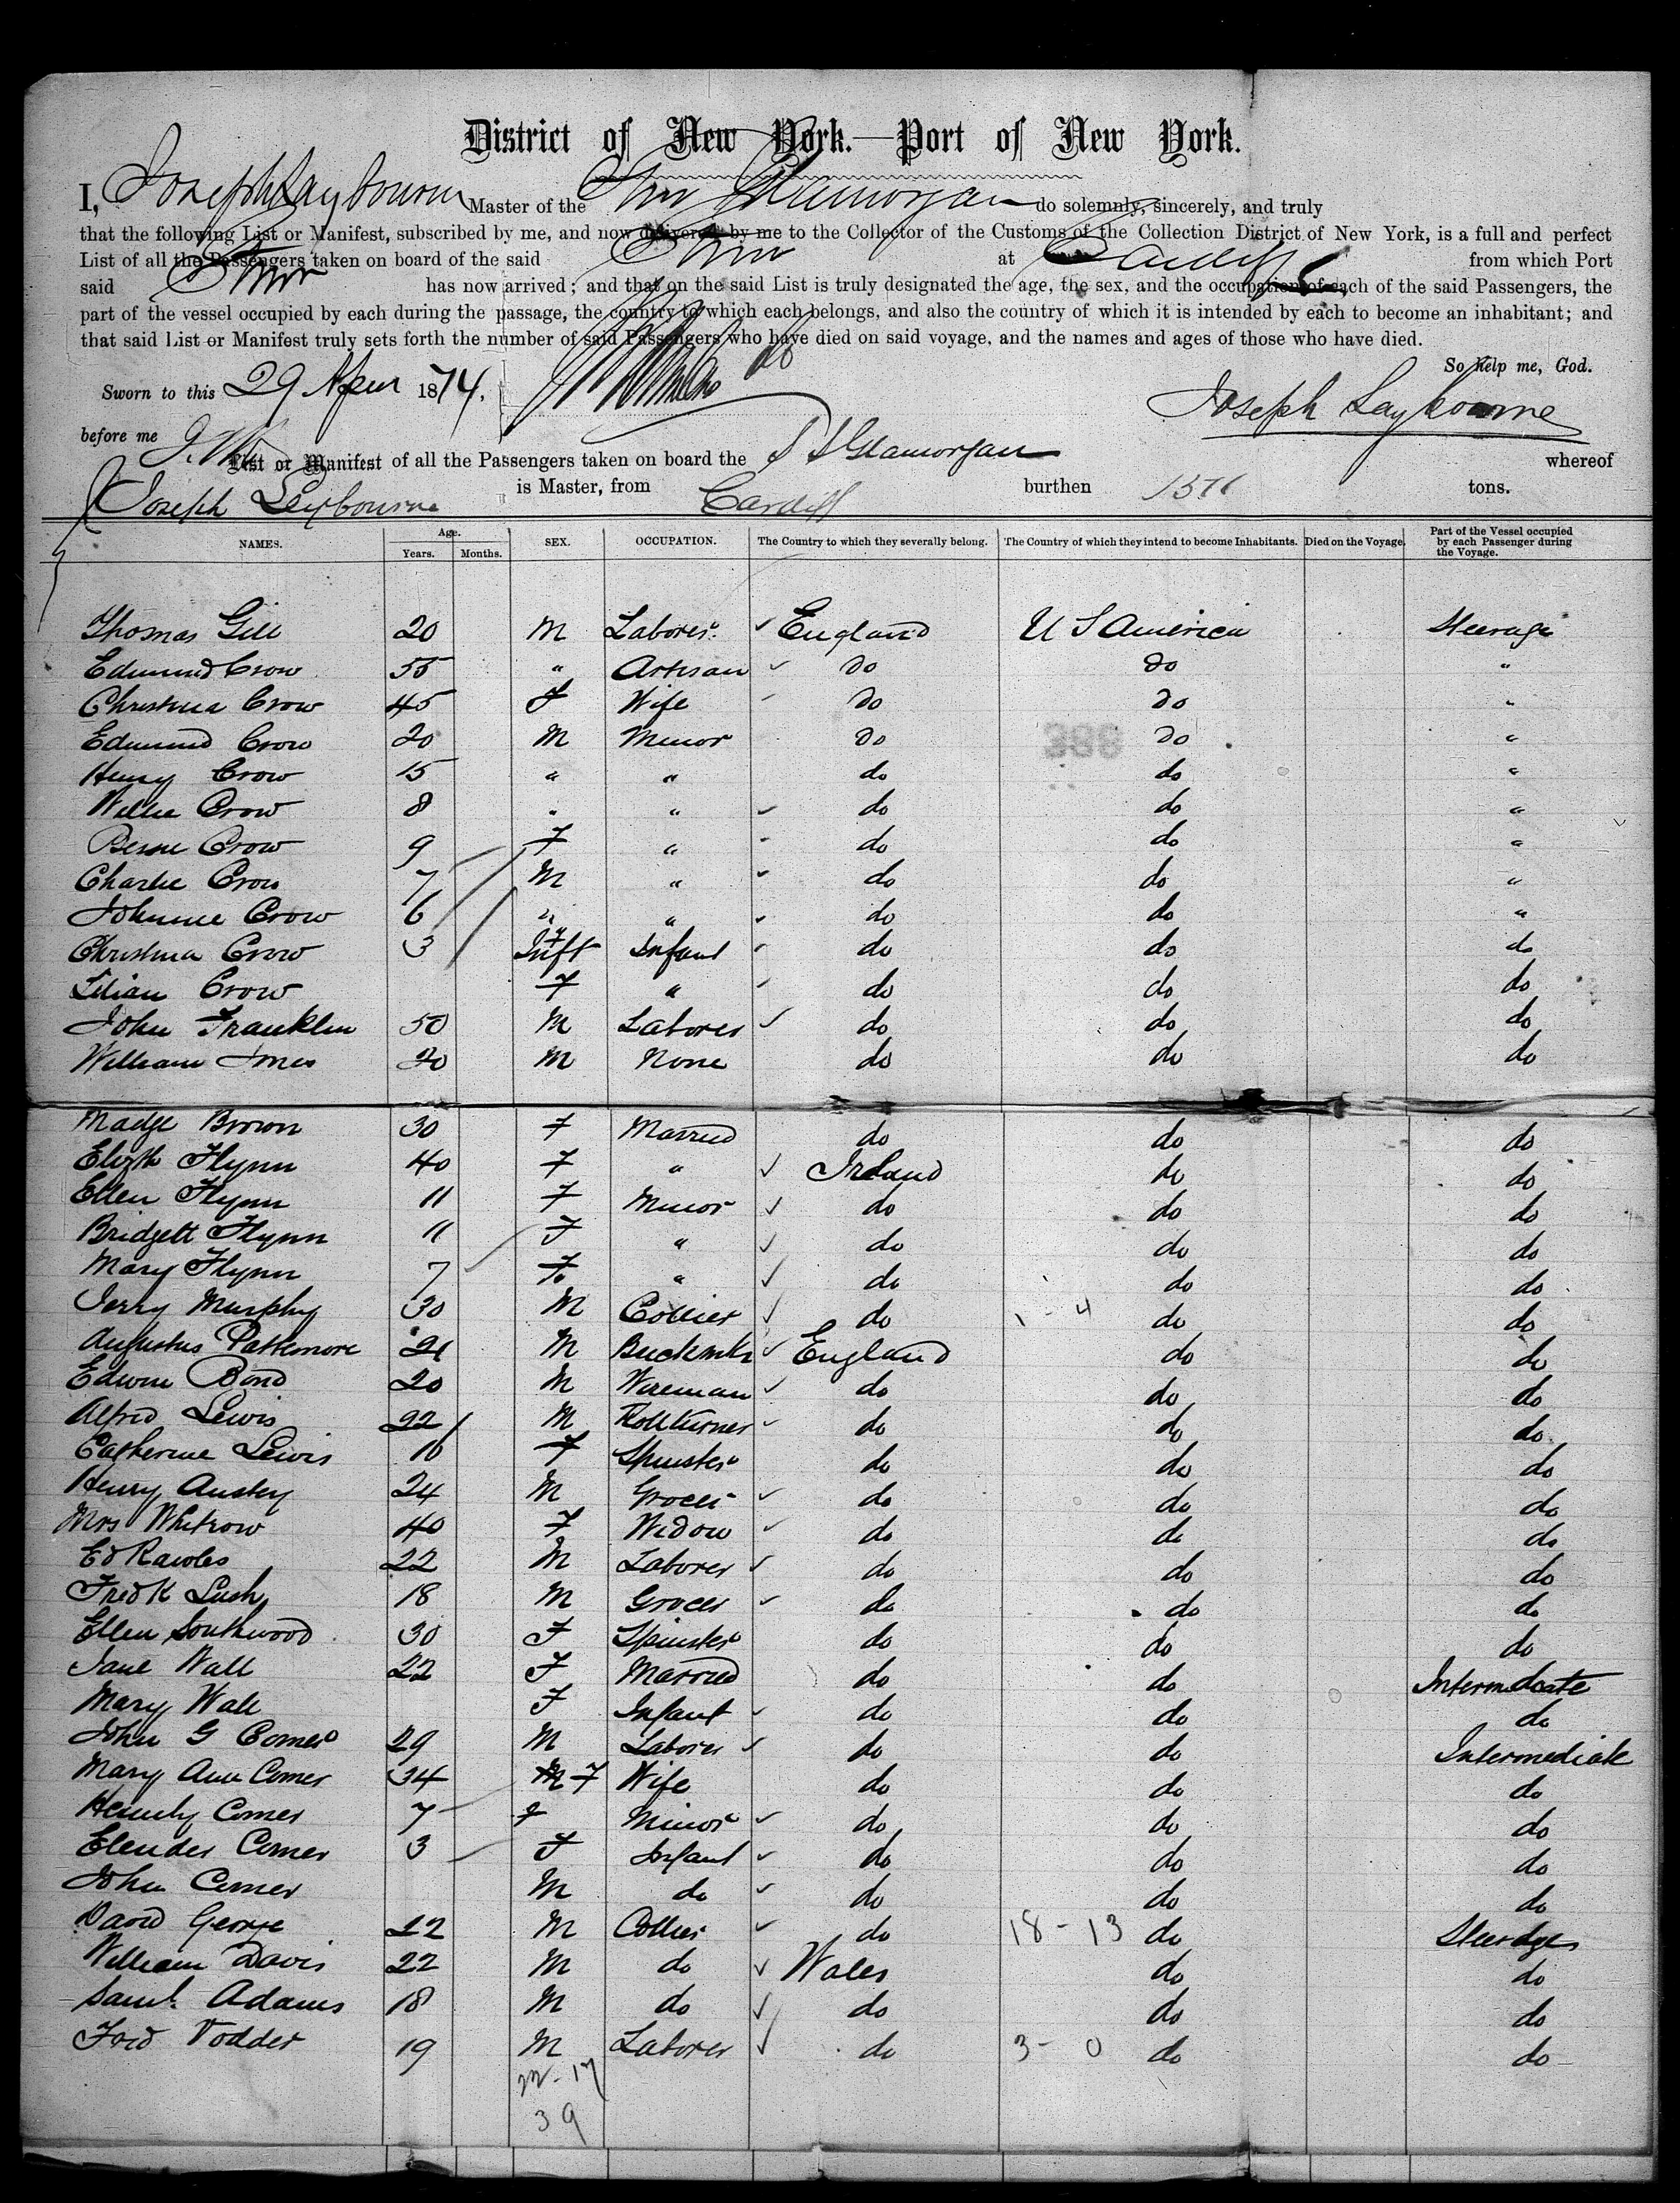 District of New York.—Port of New York.
I, Joseph Laybourn Master of the Stmr Glamorgan do solemnly, sincerely, and truly
that the following List or Manifest, subscribed by me, and now delivered by me to the Collector of the Customs of the Collection District of New York, is a full and perfect
List of all the Passengers taken on board of the said Stmr at Cardiff from which Port
said Stmr has now arrived; and that on the said List is truly designated the age, the sex, and the occupation of each of the said Passengers, the
part of the vessel occupied by each during the passage, the country to which each belongs, and also the country of which it is intended by each to become an inhabitant; and
that said List or Manifest truly sets forth the number of said Passengers who have died on said voyage, and the names and ages of those who have died.
So help me, God.
Sworn to this 29 April 1874. Joseph Laybourne
before me
List or Manifest of all the Passengers taken on board the S S Glamorgan whereof
Joseph Leybourne is Master, from Cardiff burthen tons.
NAMES. Age. Years. Months. SEX. OCCUPATION. The Country to which they severally belong. The Country of which they intend to become Inhabitants. Died on the Voyage. Part of the Vessel occupied by each Passenger during the Voyage.
Thomas Gill 20 M Laborer England U S America Steerage
Edmund Crow 55 " Artisan do do "
Christina Crow 45 F Wife do do "
Edmund Crow 20 M Minor do do "
Henry Crow 15 " " do do "
Willie Crow 8 " " do do "
Crow 9 F " do do "
Charlie Crow 7 M " do do "
Johnnie Crow 6 " " do do "
Christina Crow 3 Inft Infant do do do
Lilian Crow F " do do do
John Franklin 50 M Laborer do do do
William 20 M None do do do
Madge Brown 30 F Married do do do
Elizth Flynn 40 F " Ireland do do
Ellen Flynn 11 F Minor do do do
Bridgett Flynn 11 F " do do do
Mary Flynn 7 F " do do do
Jerry Murphy 30 M Collier do 1 - 4 do do
Augustus Pattemore 21 M England do do
Edwin Bond 20 M Wireman do do do
Alfred Lewis 22 M Rollturner do do do
Catherine Lewis 16 F Spinster do do do
Henry Anstey 24 M Grocer do do do
Mrs Whitrow 40 F Widow do do do
Ed Rawles 22 M Laborer do do do
Fredk Lush 18 M Grocer do do do
Ellen Southwood 30 F Spinster do do do
Jane Wall 22 F Married do do Intermediate
Mary Wall F Infant do do do
John G Comer 29 M Laborer do do Intermediate
Mary Ann Comer 34 F Wife do do do
Comer 7 F Minor do do do
Elender Comer 3 F Infant do do do
John Comer M do do do do
David George 22 M Collier do 18 - 13 do Steerage
William Davis 22 M do Wales do do
Saml. Adams 18 M do do do do
Fred Vodder 19 M Laborer do 3 - 0 do do
M - 17
39